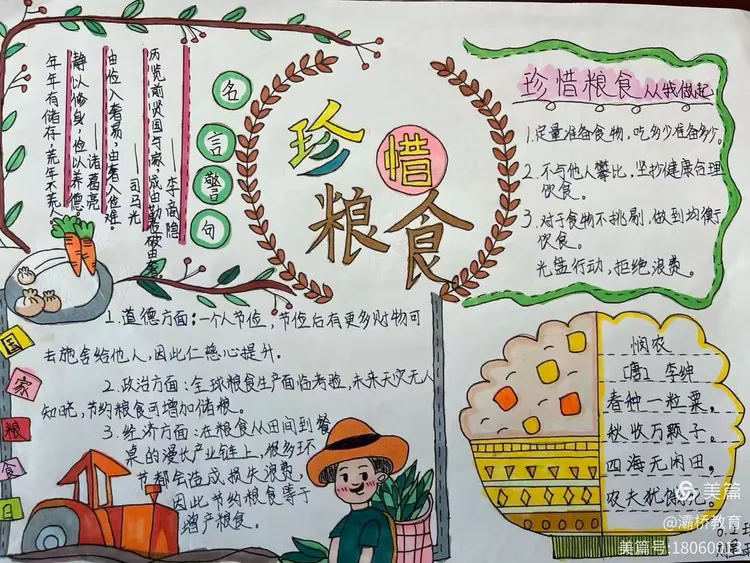 珍惜
粮食
名言警句
历览前贤国与家,成由勤俭破由奢
——李商隐
由俭入奢易,由奢入俭难。
——司马光
静以修身,俭以养德。
——诸葛亮
年年有储存,荒年不荒人
珍惜粮食从我做起
1.定量准备食物,吃多少准备多少。
2.不与他人攀比,坚持健康合理
饮食。
3.对于食物不挑剔,做到均衡
饮食。
光盘行动,拒绝浪费。
1.道德方面:一个人节俭,节俭后有更多财物可
去施舍给他人,因此仁慈心提升。
2.政治方面:全球粮食生产面临考验,未来天灾无人
知晓,节约粮食可增加储粮。
3.经济方面:在粮食从田间到餐
桌的漫长产业链上,很多环
节都会造成损失浪费,
因此节约粮食等于
增产粮食。
国家粮食日
悯农
[唐] 李绅
春种一粒粟,
秋收万颗子。
四海无闲田,
农夫犹
美篇
@灞桥教育
美篇号:18060613